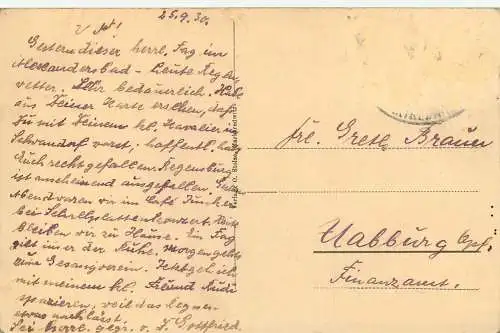 25.9.30.
Gestern dieser herrl. Tag im
Alexandersbad - heute Regen-
wetter. Sehr bedauerlich. Habe
aus Deiner Karte ersehen, daß
Du mit Deinem kl. Kavalier in
Schwandorf warst; hoffentl. hat's
Euch recht gefallen. Regensburg
ist anscheinend ausgefallen. Gestern
Abend waren wir im Café
bei Schallplattenkonzert. Heute
bleiben wir zu Hause. Ein Tag
gilt immer der Ruhe. Morgen geht's
zum Gesangverein. Jetzt geh ich
mit meinem kl. Freund Rudi
spazieren, weil das Regnen
etwas nachlässt.
Sei herzl. gegr. v. D. Gottfried
Frl. Gretl Brauer
Nabburg Opf.
Finanzamt.